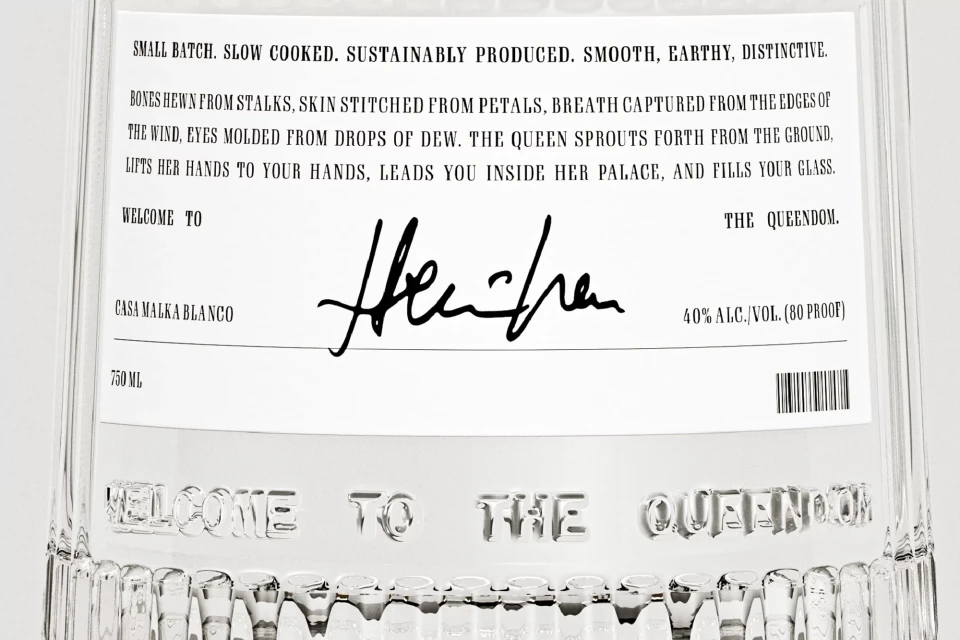 SMALL BATCH. SLOW COOKED. SUSTAINABLY PRODUCED. SMOOTH, EARTHY, DISTINCTIVE.
BONES HEWN FROM STALKS, SKIN STITCHED FROM PETALS, BREATH CAPTURED FROM THE EDGES OF
THE WIND, EYES MOLDED FROM DROPS OF DEW. THE QUEEN SPROUTS FORTH FROM THE GROUND,
LIFTS HER HANDS TO YOUR HANDS, LEADS YOU INSIDE HER PALACE, AND FILLS YOUR GLASS.
WELCOME TO THE QUEENDOM.
CASA MALKA BLANCO 40% ALC./VOL. (80 PROOF)
750 ML
WELCOME TO THE QUEENDOM